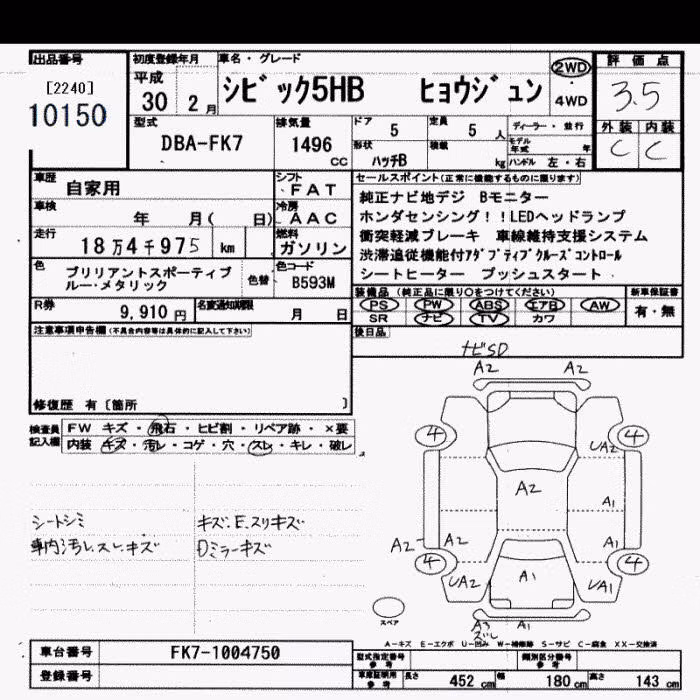 出品番号
[2240]
10150
初度登録年月
平成
30 2月
車名・グレード
シビック5HB ヒョウジュン
2WD
・
4WD
評価点
3.5
外装 内装
C C
型式
DBA-FK7
排気量
1496
CC
ドア 5
定員 5 人
形状
ハッチB
積載
kg
ディーラー・並行
モデル年式 年
ハンドル 左・右
車歴
自家用
シフト
FAT
車検
年 月( 日)
冷房
AAC
走行
18万4千975 km
燃料
ガソリン
色
ブリリアントスポーティブ
ルー・メタリック
色替
色コード
B593M
R券
9,910円
名変通知期限
月 日
セールスポイント(正常に機能するものに限ります)
純正ナビ地デジ Bモニター
ホンダセンシング!!LEDヘッドランプ
衝突軽減ブレーキ 車線維持支援システム
渋滞追従機能付アダプティブクルーズコントロール
シートヒーター プッシュスタート
装備品(純正品に限り○をつけてください)
PS PW ABS エアB AW
SR ナビ TV カワ
新車保証書
有・無
後日品
ナビSD
注意事項申告欄(不具合内容等は具体的に記入して下さい)
修復歴 有〔箇所 〕
検査員
記入欄
FW キズ・飛石・ヒビ割・リペア跡・×要
内装 キズ・汚レ・コゲ・穴・スレ・キレ・破レ
シートシミ
車内汚レ.スレ.キズ
キズ.E.スリキズ
Dミラーキズ
A2 A2
4 4
UA2
A2
A1
A2 A2
A1
4 4
UA2 A1 UA1
A3 A1
ズレ
スペア
A-キズ E-エクボ U-凹み W-補修跡 S-サビ C-腐食 XX-交換済
車台番号
FK7-1004750
登録番号
型式指定番号
参考
類別区分番号
参考
車庫証明用
参考
長さ 452 cm
幅 180 cm
高さ 143 cm